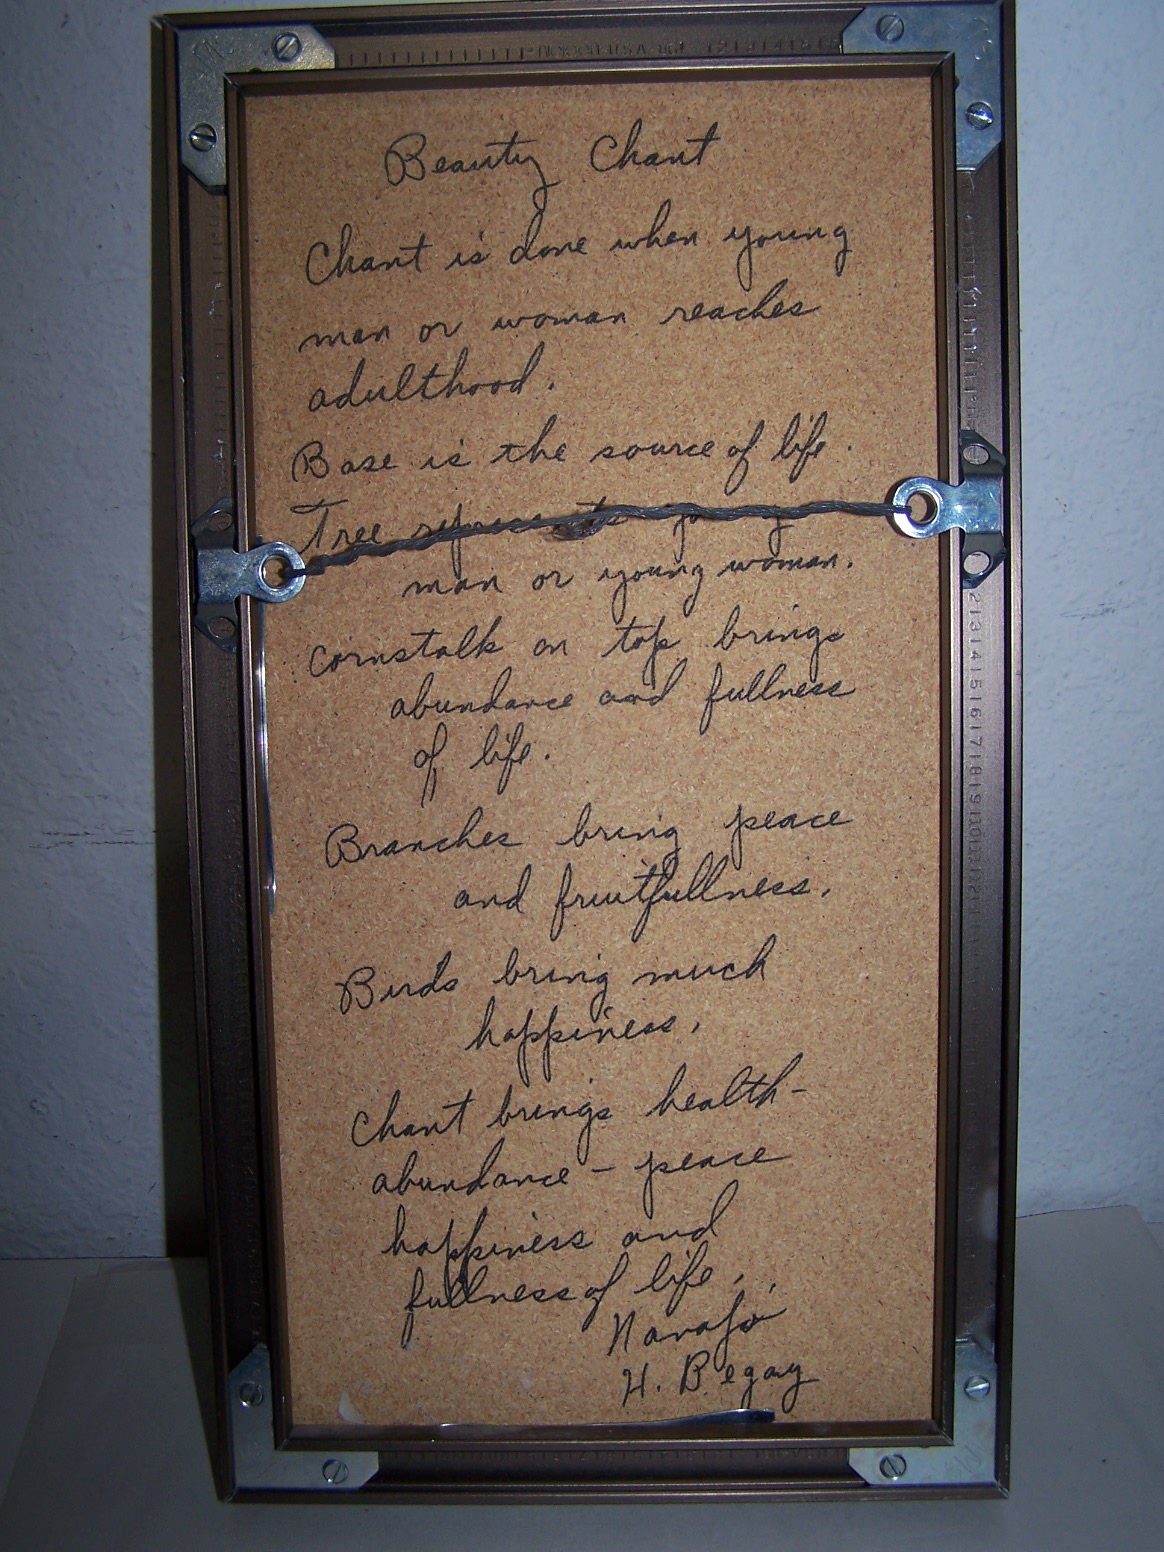 Beauty Chant
Chant is done when young
man or woman reaches
adulthood.
Base is the source of life.
Tree represents young
man or young woman.
Cornstalk on top brings
abundance and fullness
of life.
Branches bring peace
and fruitfullness.
Birds bring much
happiness.
Chant brings health-
abundance - peace
happiness and
fullness of life.
Navajo
H. Begay